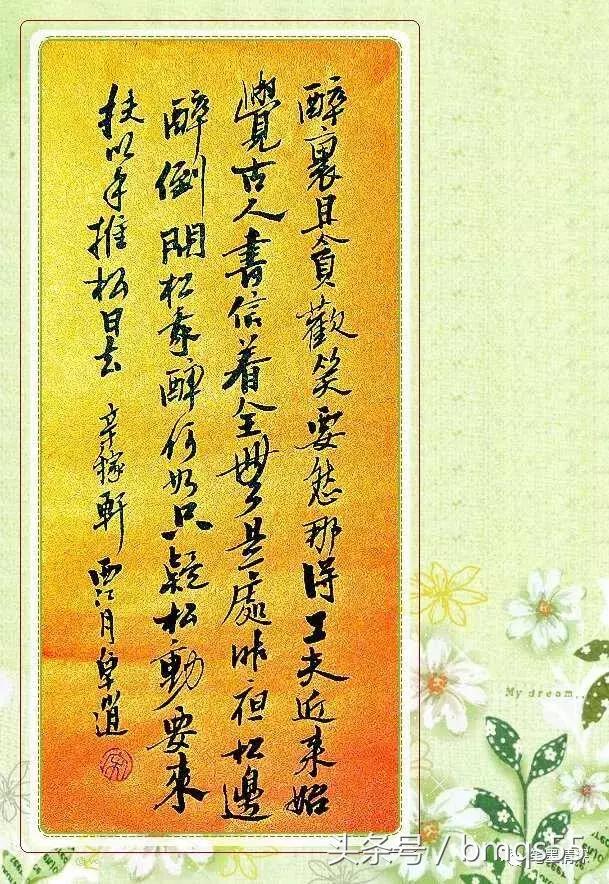 醉裏且貪歡笑要愁那得工夫近来始
覺古人書信着全無是處昨夜松邊
醉倒問松我醉何如只疑松動要來
扶以手推松曰去 辛稼軒 西江月
My dream..
头条号 / bmqs55